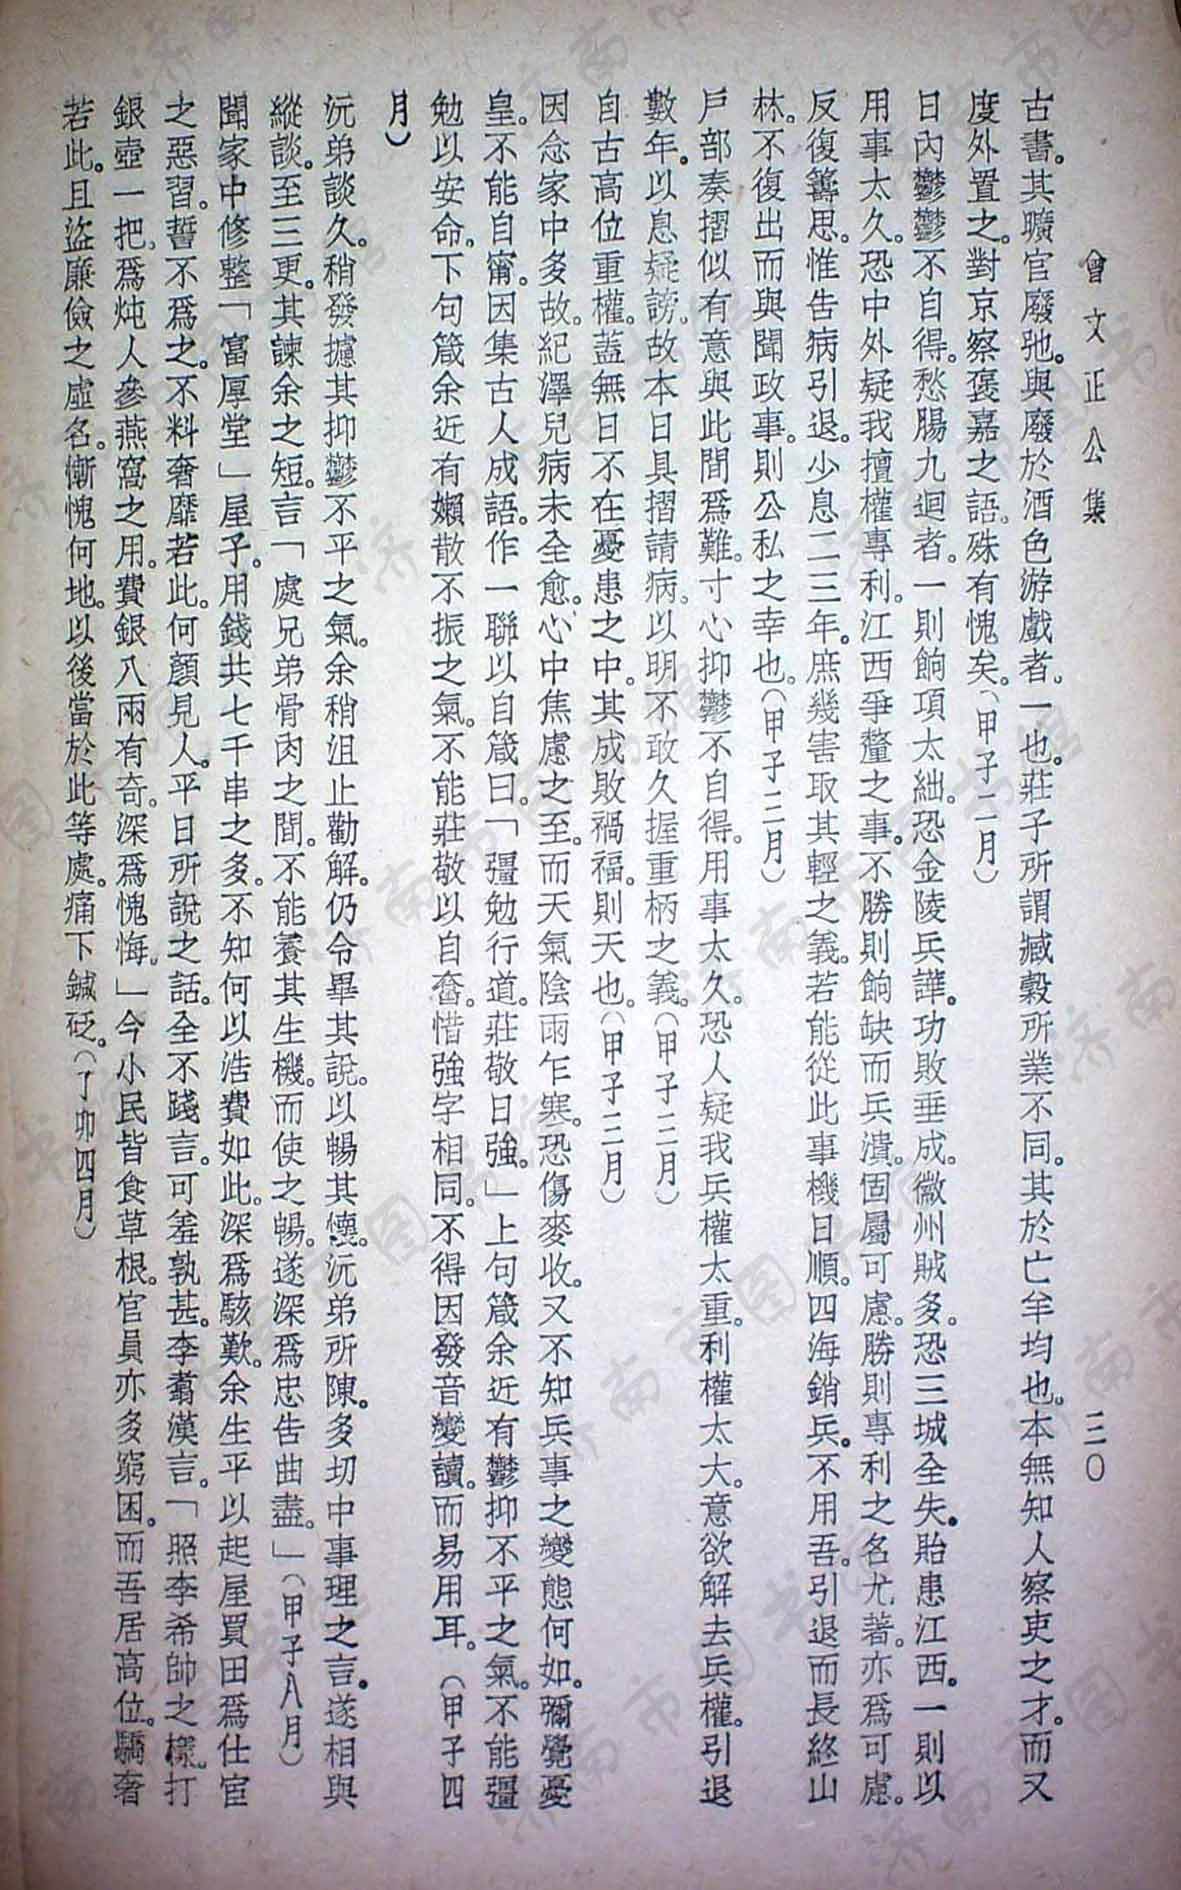 曾文正公集
三〇
古書。其曠官廢弛。與廢於酒色游戲者。一也。莊子所謂臧穀所業不同。其於亡羊均也。本無知人察吏之才。而又
度外置之。對京察褒嘉之語。殊有愧矣。(甲子二月)
日內鬱鬱不自得。愁腸九迴者。一則餉項太絀。恐金陵兵譁。功敗垂成。徽州賊多。恐三城全失。貽患江西。一則以
用事太久。恐中外疑我擅權專利。江西爭釐之事。不勝則餉缺而兵潰。固屬可慮。勝則專利之名尤著。亦為可慮。
反復籌思。惟告病引退。少息二三年。庶幾害取其輕之義。若能從此事機日順。四海銷兵。不用吾。引退而長終山
林。不復出而與聞政事。則公私之幸也。(甲子三月)
戶部奏摺似有意與此間為難。寸心抑鬱不自得。用事太久。恐人疑我兵權太重。利權太大。意欲解去兵權。引退
數年。以息疑謗。故本日具摺請病。以明不敢久握重柄之義。(甲子三月)
自古高位重權。蓋無日不在憂患之中。其成敗禍福。則天也。(甲子三月)
因念家中多故。紀澤兒病未全愈。心中焦慮之至。而天氣陰雨乍寒。恐傷麥收。又不知兵事之變態何如。彌覺憂
皇。不能自甯。因集古人成語。作一聯以自箴曰。「彊勉行道。莊敬日強。」上句箴余近有鬱抑不平之氣。不能彊
勉以安命。下句箴余近有嬾散不振之氣。不能莊敬以自奮。惜強字相同。不得因發音變讀。而易用耳。(甲子四
月)
沅弟談久。稍發攄其抑鬱不平之氣。余稍沮止勸解。仍令畢其說。以暢其懷。沅弟所陳。多切中事理之言。遂相與
縱談。至三更。其諫余之短。言「處兄弟骨肉之間。不能養其生機。而使之暢。遂深為忠告曲盡。」(甲子八月)
聞家中修整「富厚堂」屋子。用錢共七千串之多。不知何以浩費如此。深為駭歎。余生平以起屋買田為仕宦
之惡習。誓不為之。不料奢靡若此。何顏見人。平日所說之話。全不踐言。可羞孰甚。李翥漢言。「照李希帥之樣。打
銀壺一把。為炖人參燕窩之用。費銀八兩有奇。深為愧悔。」今小民皆食草根。官員亦多窮困。而吾居高位。驕奢
若此。且盜廉儉之虛名。慚愧何地。以後當於此等處。痛下鍼砭。(丁卯四月)